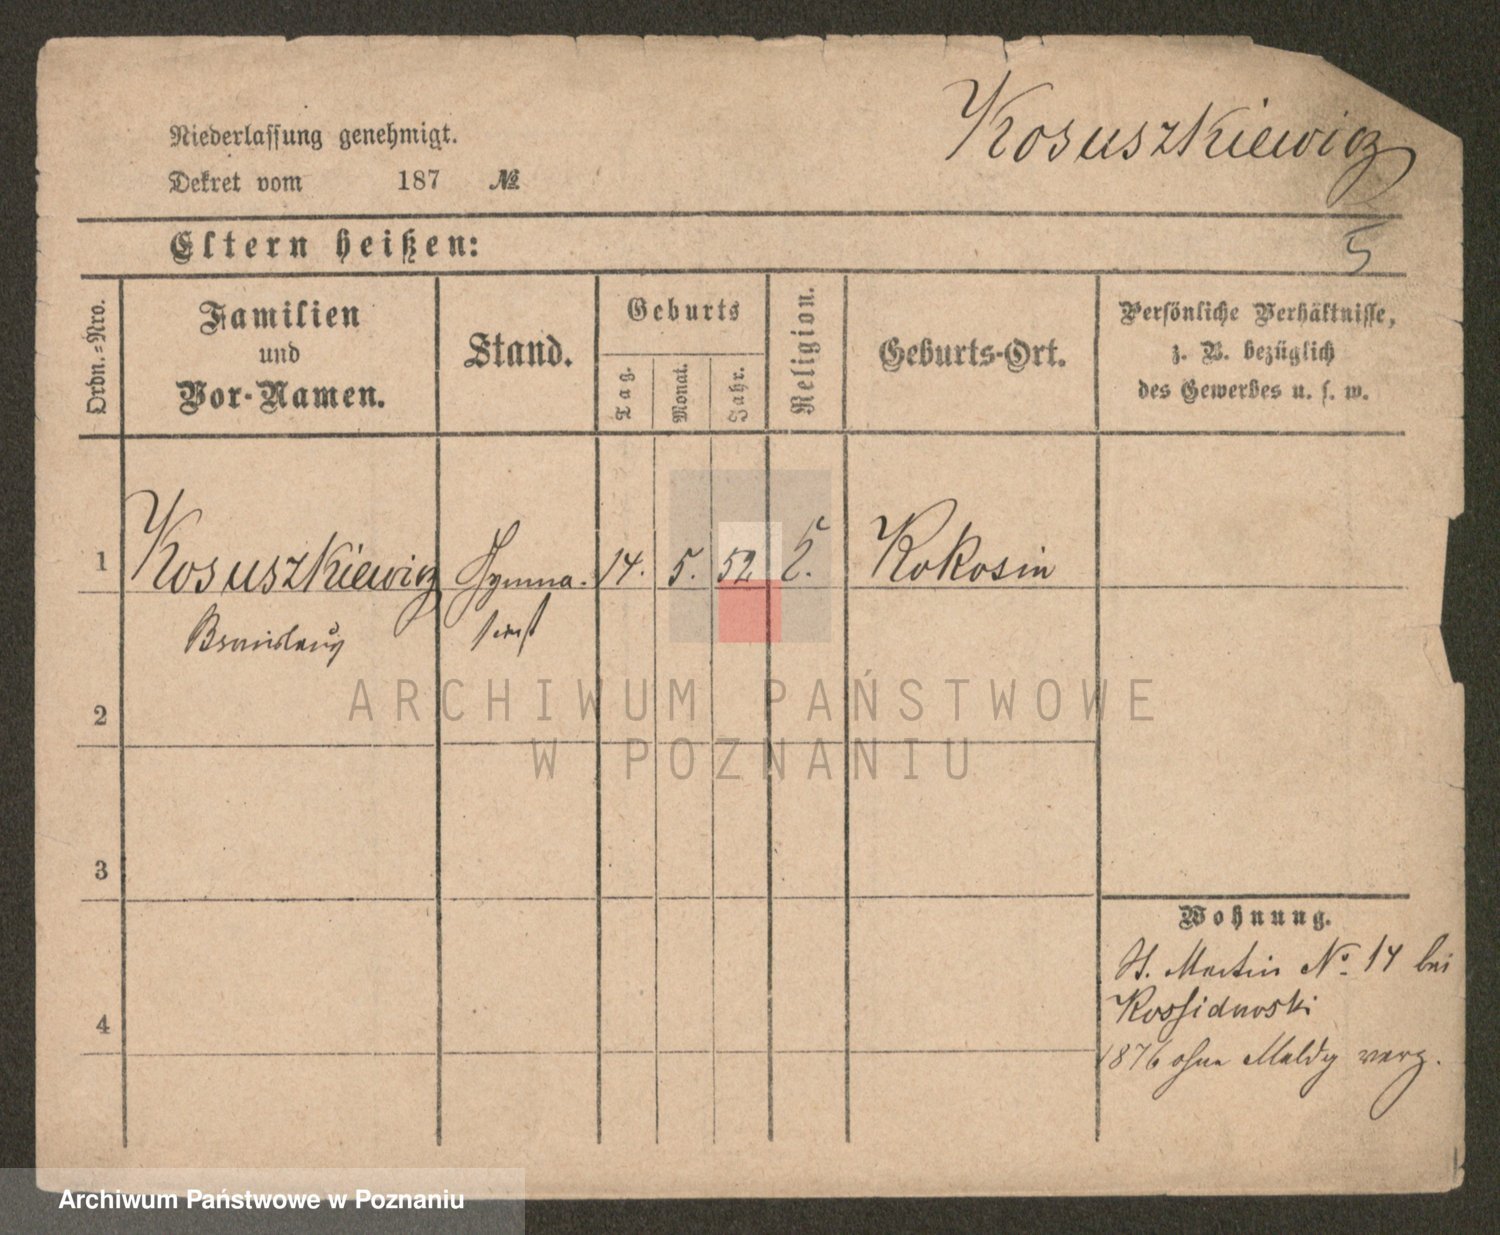 Kosuszkiewicz
Niederlassung genehmigt.
Dekret vom 187 №
Eltern heißen:
5
Ordn.=Nro.
Familien
und
Vor-Namen.
Stand.
Geburts
Tag.
Monat.
Jahr.
Religion.
Geburts-Ort.
Persönliche Verhältnisse,
z. B. bezüglich
des Gewerbes u. s. w.
1 Kosuszkiewicz Gymna- 14. 5. 52 Kokosin
siast
2
3
4
Wohnung.
St. Martin No 14 bei
1876 ohne Meldg verz.
ARCHIWUM PAŃSTWOWE
W POZNANIU
Archiwum Państwowe w Poznaniu